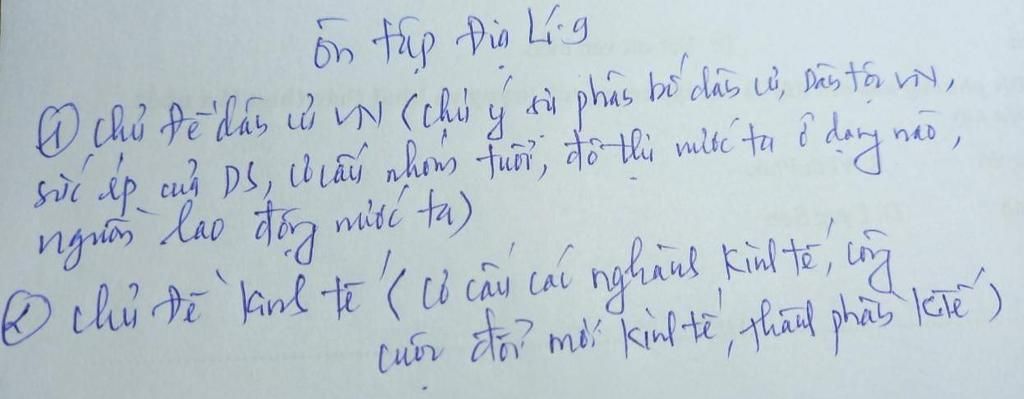 ôn tập Địa Lí.9
① Chủ đề dân cư VN (chú ý sự phân bố dân cư, Dân tộc VN,
sức ép của DS, cơ cấu nhóm tuổi, đô thị nước ta ở dạng nào,
nguồn lao động nước ta)
② Chủ đề kinh tế (cơ cấu các nghành kinh tế, công
cuộc đổi mới kinh tế, thành phần KTế)